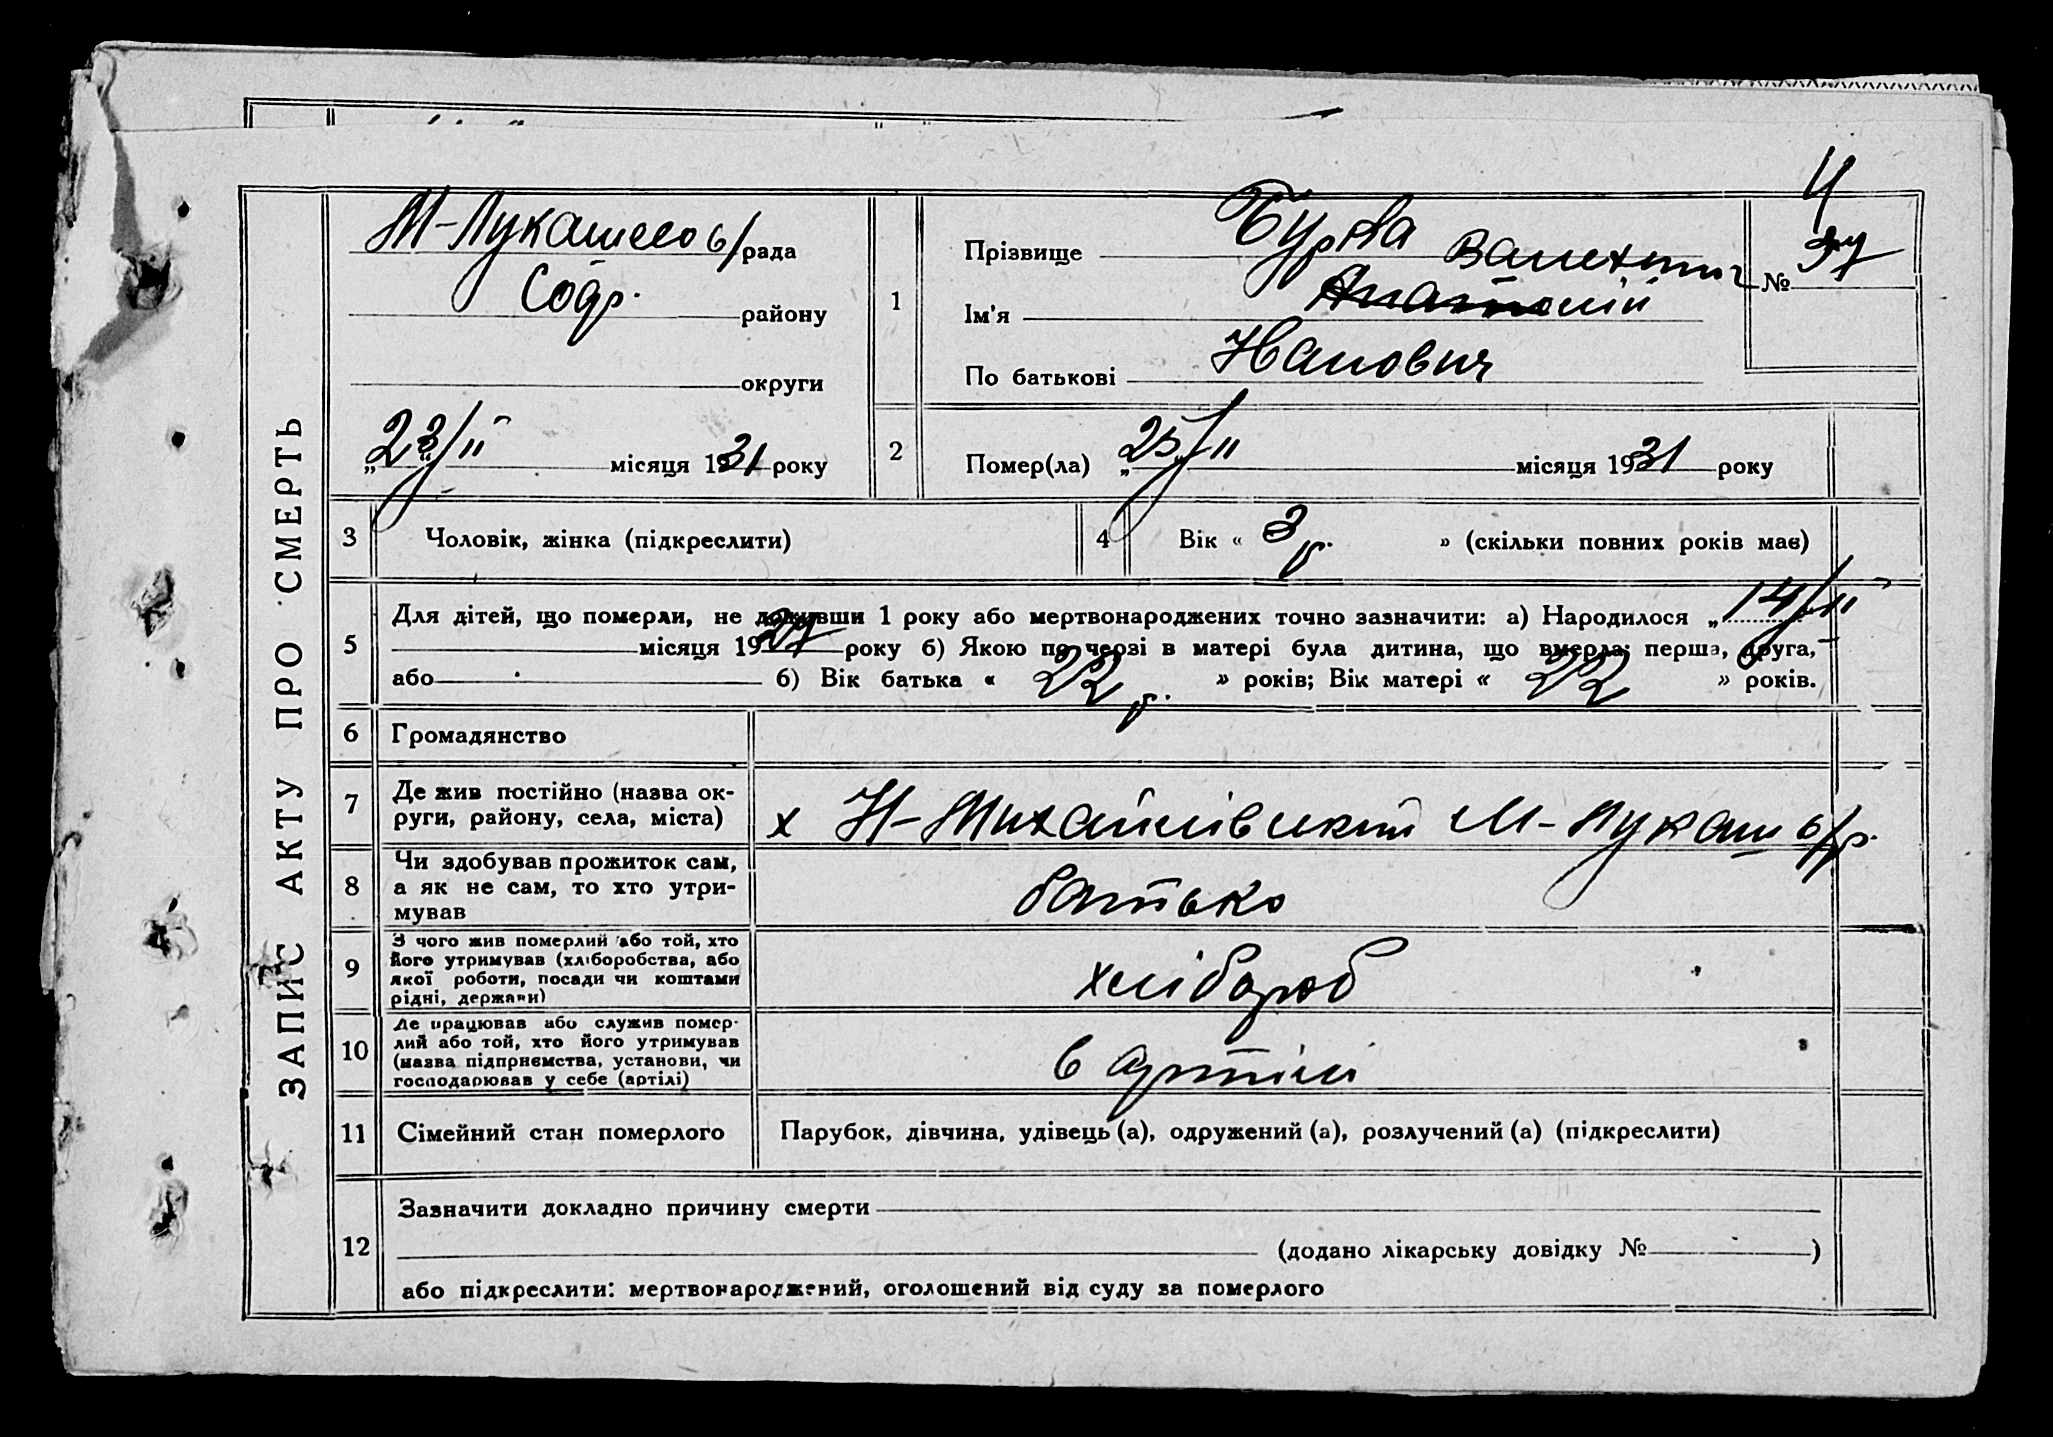 ЗАПИС АКТУ ПРО СМЕРТЬ
М-Лукашево с/рада
Содр. району
округи
„23/II місяця 1931 року
1
Прізвище Бурва
Валентин
Ім'я Анатолій
По батькові Іванович
4
№ 37
2
Помер(ла) „25/II місяця 1931 року
3 Чоловік, жінка (підкреслити)
4 Вік « 3 р. » (скільки повних років має)
5
Для дітей, що померли, не доживши 1 року або мертвонароджених точно зазначити: а) Народилося „14/II
місяця 19 року б) Якою по черзі в матері була дитина, що вмерла: перша, друга,
або 6) Вік батька « 22 р. » років; Вік матері « 22 » років.
6 Громадянство
7
Де жив постійно (назва ок-
руги, району, села, міста)
х Н-Михайлівський М-Лукаш с/р.
8
Чи здобував прожиток сам,
а як не сам, то хто утри-
мував
батько
9
З чого жив померлий або той, хто
його утримував (хліборобства, або
якої роботи, посади чи коштами
рідні, держави)
хлібороб
10
Де працював або служив помер-
лий або той, хто його утримував
(назва підприємства, установи, чи
господарював у себе (артілі)
в артілі
11 Сімейний стан померлого
Парубок, дівчина, удівець (а), одружений (а), розлучений (а) (підкреслити)
12
Зазначити докладно причину смерти
(додано лікарську довідку № )
або підкреслити: мертвонароджений, оголошений від суду за померлого